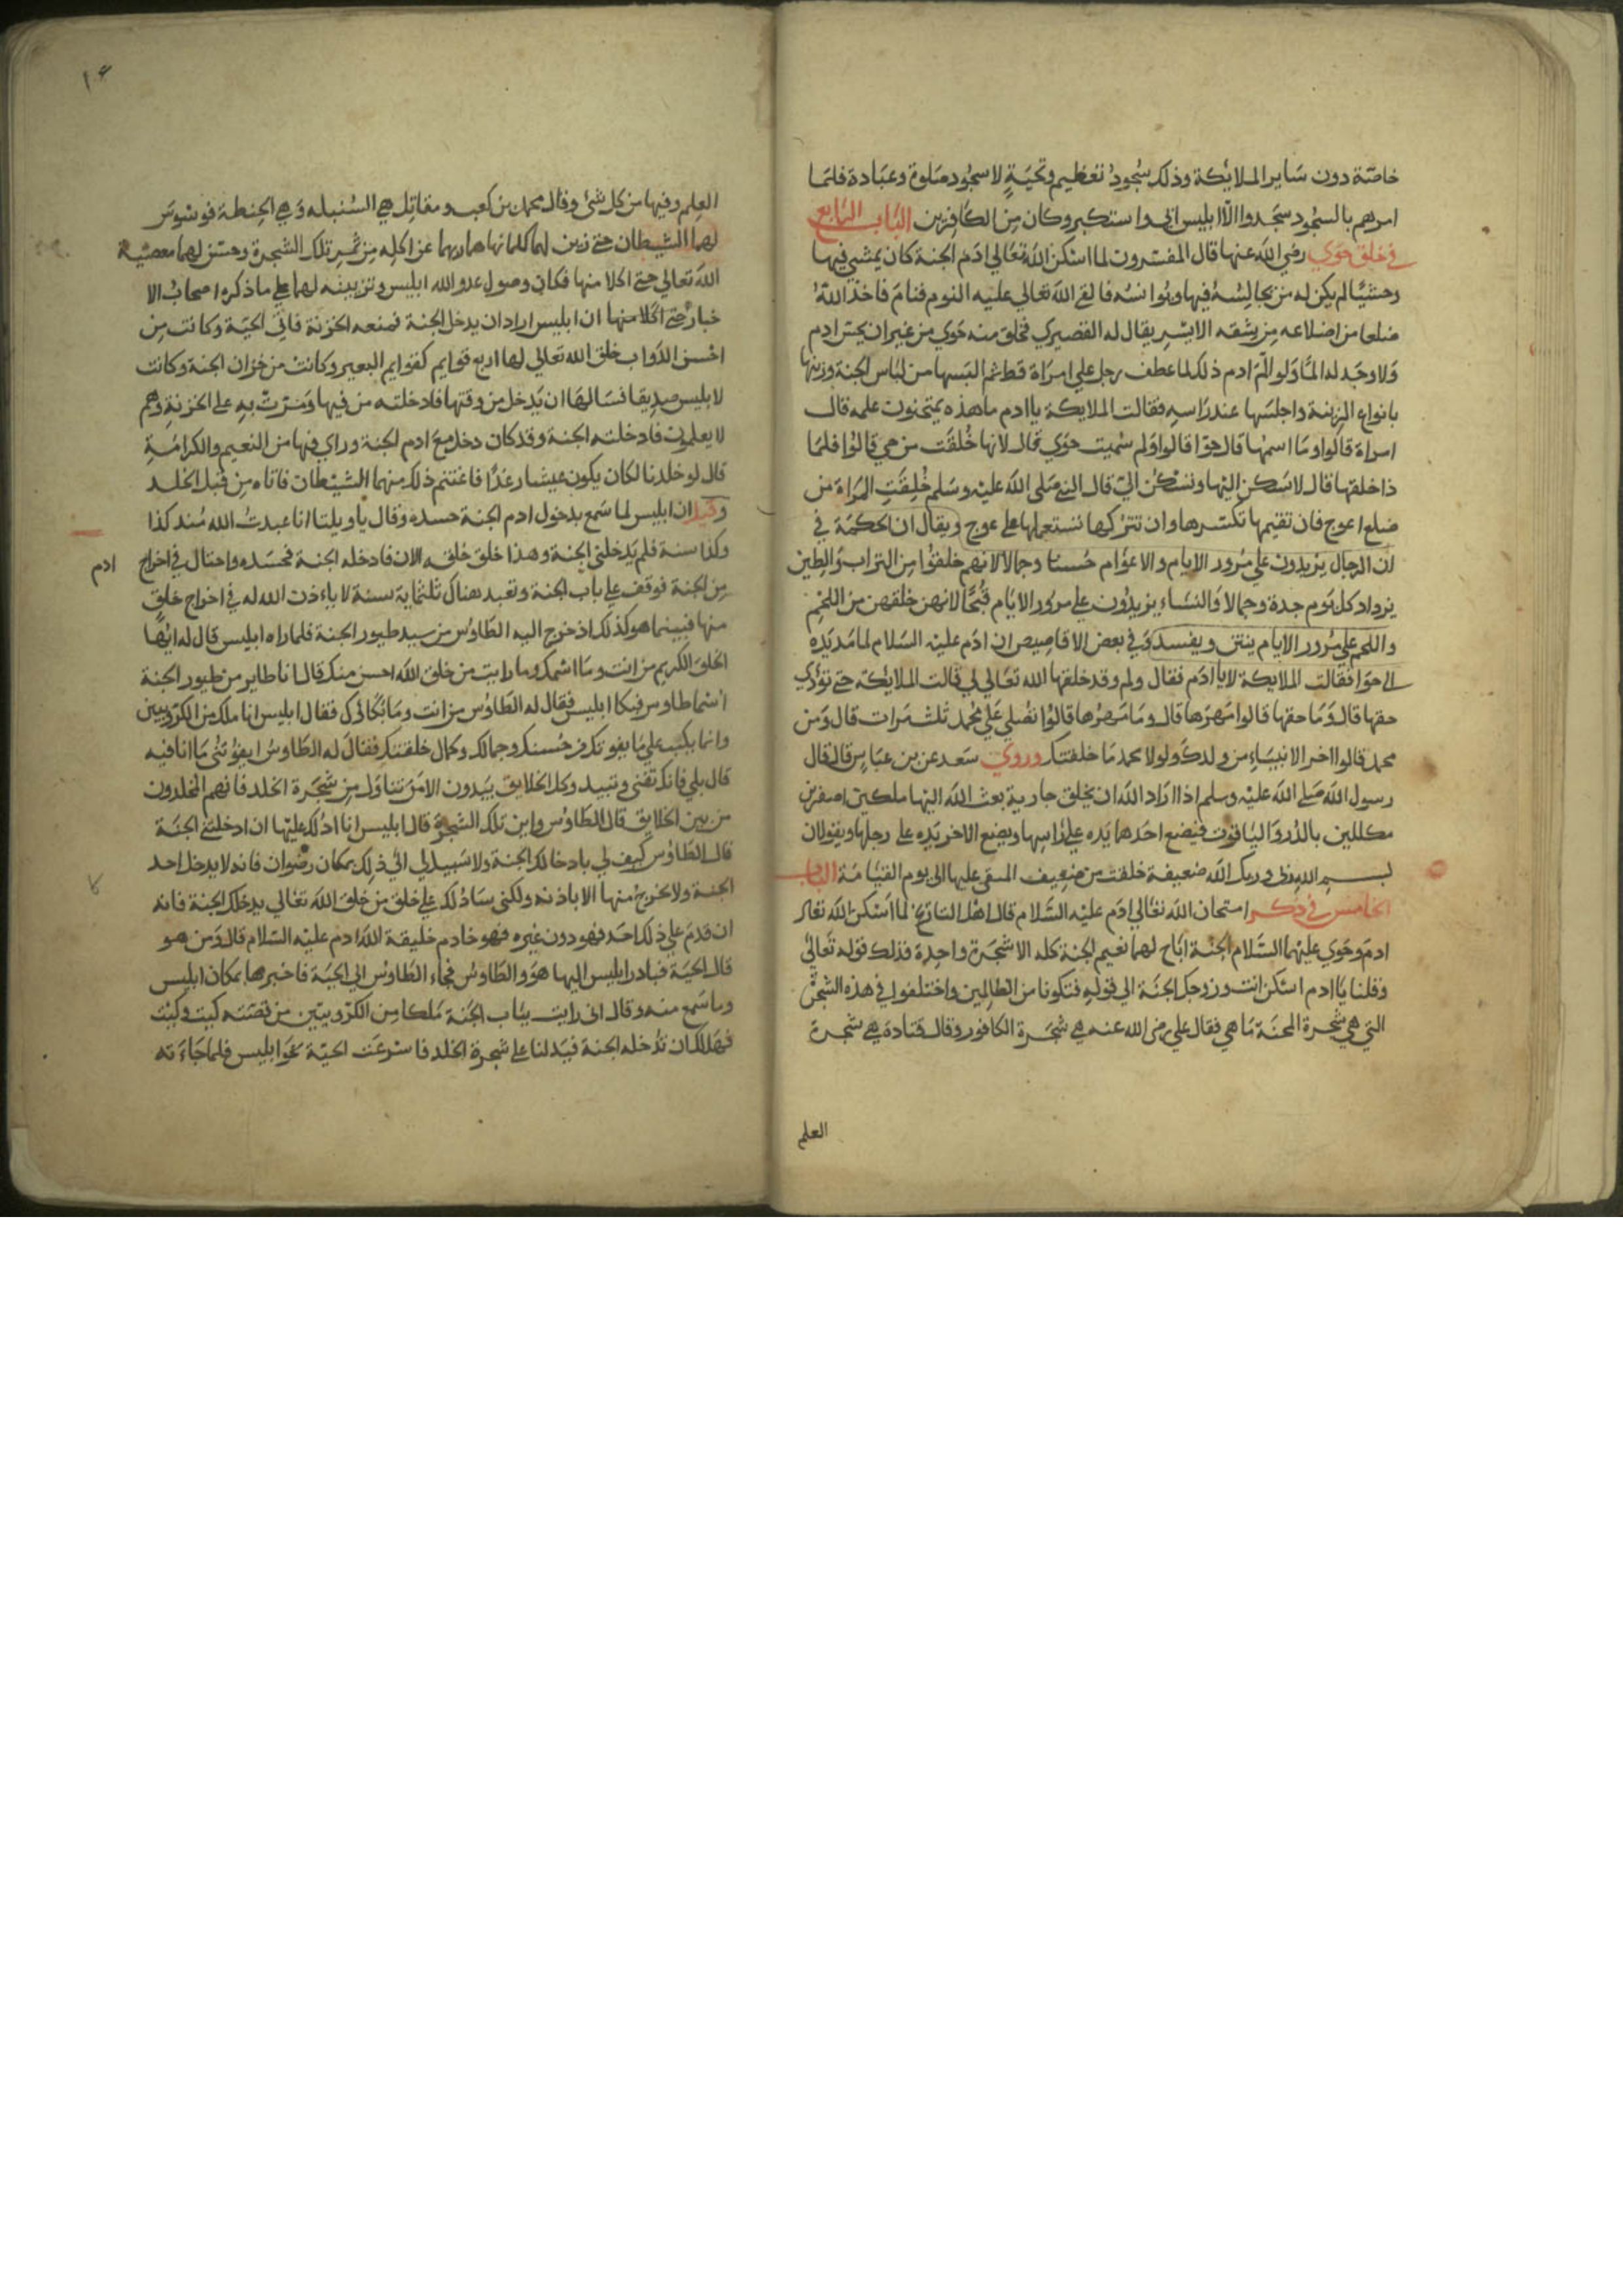 خاصّة دون سَاير الملايكة وذلك سُجودُ تعظيم وتحيَةٍ لا سجُود صَلوة وعبَادة فلمَا
امرهم بالسجُود سَجَدوا الّا ابليس ابي واستكبر وكان مِن الكافِرين البَاب الرَابع
في خلق حوَي رضي الله عنها قال المفسّرون لما اسكن الله تعَالي ادَم الجنة كان يمشي فيها
وحشيًّا لم يكن له من يجَالِسُهُ فيها ويُوانسُه فالقي الله تعَالي عليه النوم فنامَ فاخذ اللهُ
ضلعا من اضلاعه مِن شِقه الايسَر يقال له القصيري فخلق منه حَوي من غير ان يحسّ ادم
وَلا وجَد له المًا وَلو الم ادم ذلك لما عطف رجل علي امرَاة قط ثم البَسها من لبَاس الجنة وزينها
بانواع الزينة واجلسَها عند رَاسِهِ فقالت الملايكة يا ادم ما هذه يمتحنون علمه قال
امراة قالوا ومَا اسمهَا قال حوّا قالوا وَلم سُميت حوَي قال لانها خُلقَت من حي قالوُا فلمَا
ذا خلقها قال لاسَكن اليْهَا وتسْكن اليّ قال النبي صَلي الله عليْه وسَلم خُلِقَتِ المَرَاة من
ضلع اعوج فان تقيمها تكسّرها وان تتركها تستعملها علي عوج ويقال ان الحكمَة في
ان الرجال يزيدون علي مرُور الايام والاعوَام حُسنا وجمالا لانهم خلقوُا مِن التراب وَالطين
يزداد كل يَوم جدة وجمالا وَالنسَاء يزيدُون علي مرُور الايَام قُبحًا لانهن خلقهن من اللحْم
واللحم علي مرُور الايام ينتن ويفسد وَفي بعض الاقاصيص ان ادَم عليْه السَلام لما مَد يَده
الي حوَا فقالت الملايكة لا يا ادَم فقال ولم وقد خلقها الله تعَالي لي قالت الملايكة حتي تؤدّي
حقها قال وَمَا حقها قالوا مَهرَها قال ومَا مَهرُها قالوُا تصُلي عَلي مُحمد ثلث مَرات قال وَمَن
محمد قالوا اخر الانبيَاءِ من ولدك وَلولا محمد مَا خلقتك وروي سَعد عن بن عبَاس قال قال
رسول الله صَلي الله عليْه وسلم اذا ارَاد الله ان يخلق جارية بعث الله اليْها ملكين اصفرين
مكللين بالدُر وَاليَاقوت فيَضع احَدهما يَده علي رَاسِها ويضع الاخر يَده علي رجلها ويقولان
بسم الله ربي وربك الله ضعيفة خلقت من ضعِيف المنفق عليها الي يوم القيَامَة الباب
الخامس في ذكر امتحان الله تعَالي ادَم عليْه السَّلام قال اهْل التاريخ لما اسْكن الله تعالي
ادمَ وحَوي عليْهما السَّلام الجنة ابَاح لهما نعيم الجنة كله الا شجَرة واحِدة فذلك قوله تَعَالي
وقلنا يَا ادم اسْكن انت وزوجك الجنَة الي قولِهِ فتكونا من الظالِمين واختلفوا في هذه الشجرة
التي هي شجرة المحنَة مَا هي فقال علي رضي الله عنه هي شجَرة الكافور وقال قتادة هي شجرة
العلم
١٤
العِلم وفيها من كل شئ وقال محمد بن كعب ومقاتِل هي السُنبله وَهي الحِنطة فوسْوسَ
لهما الشيطان حتي زين لهما اكلِه مِن ثمر تلك الشجرة وحسّن لهما معصيَة
الله تعالي حتي اكلا منها فكان وصول عدو الله ابليس وتزيينه لهما علي ما ذكره اصحابُ الا
خبار حتي اكلا منها ان ابليس اراد ان يدخل الجنة فمنعه الخزنة فاتي الحيَة وكانت مِن
احسن الدَواب خلق الله تعَالي لها اربع قوايم كقوايم البعير وكانت من خزان الجنة وكانت
لابليس صدِيقا فسَالهَا ان يَدخل من فيها فادخلته من فيها وَمَرّتْ بِهِ علي الخزنةِ وَهم
لا يعلمون فادخلته الجنة وقد كان دخل مع ادم الجنة وراي فيها من النعيم والكرامَةِ
قال لو خلدنا لكان يكون عيشا رغدًا فاغتنم ذلك منهما الشيْطان فاتاه مِن قبَل الخلد
وقيل ان ابليس لما سَمع بدخول ادم الجنة حسده وقال يا ويلتا انا عبدتُ الله مُنذ كذا
وكذا سنة فلم يَدخلني الجنة وهذا خلقَ خلقه الان فادخله الجنة فحَسَده واحتال في اخراج ادم
مِن الجنة فوقف علي باب الجنة وتعبد هنالك ثلثماية سنة لا ياءذن الله له في اخراج خلقٍ
منها فبَينما هو كذلك اذ خرج اليه الطاوُس من سيد طيور الجنة فلما راه ابليس قال له ايّها
الخلق الكريم من انت ومَا اسْمك وما رايت من خلق الله احسن منك قال انا طاير من طيور الجنة
اسْمي طاوس فبكا ابليس فقال له الطاوُس من انت ومَا بُكاؤك فقال ابليس انا ملك من الكروبيين
وانما بكيْت علي مَا يفوتك من حُسنك وجمالك وكمال خلقتك فقال له الطاوسُ ايفوتنُي مَا انا فيه
قال بلي فانك تفني وتبيد وكل الخلايق يبَيدون الا مَن تنَاوَل مِن شجَرة الخلد فانهم المخلدون
من بين الخلايق قال الطاوُس واين تلك الشجرة قال ابليس انا ادُلك عليْها ان ادخلتني الجنَة
قال الطاوُس كيف لي بادخالك الجنة ولا سَبيل لي الي ذلِك بمكان رضْوان فانه لا يدخل احد
الجنة ولا يخرجُ منها الا باذنه ولكني سَادُلك عَلي خلق من خلق الله تعَالي يدخلك الجنة فانه
ان قدَم علي ذلك احَد فهو دون غيره فهو خادم خليفة الله ادم عليْه السّلام قال وَمن هو
قال الحيَة فبادر ابليس اليها هوَ والطاوُس فجاء الطاوُس الي الحيَة فاخبرها بمكان ابليس
وما سَمع منه وقال اني رايت ببَاب الجنَة مَلكا مِن الكروبيّين من قصّته كيت وكيْت
فهَل لك ان تدْخله الجنة فيَدلنا علي شجرة الخلد فاسْرعَت الحيَة نحوَ ابليس فلما جَاءَته